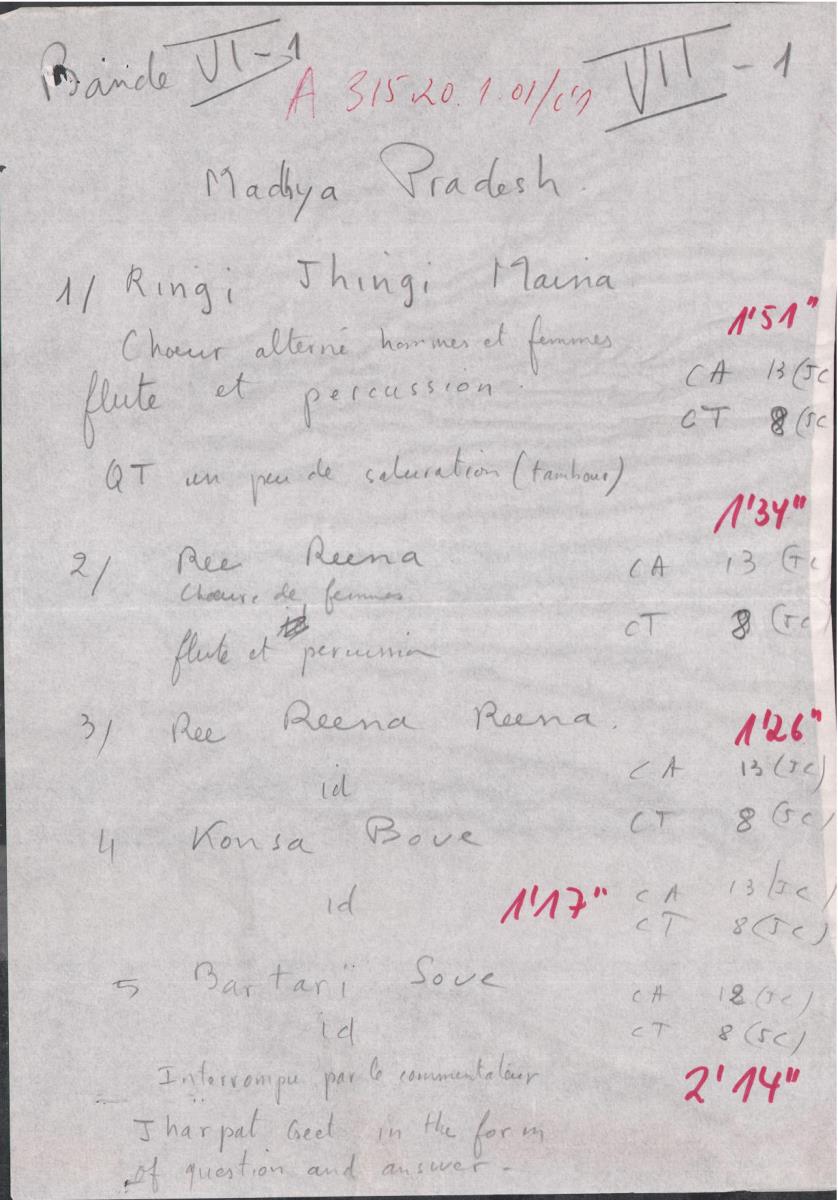 Bande VI-1 VII - 1
A 31520.1.01/
Madhya Pradesh.
1/ Ringi Jhingi Maina
1'51"
Chœur alterné hommes et femmes
CA 13 (JC
flute et percussion.
CT 8 (JC
QT un peu de saturation (tambour)
1'34"
2/ Ree Reena CA 13 (JC
Chœurs de femmes
CT 8 (JC)
flute et percussion
3/ Ree Reena Reena. 1'26"
id CA 13 (JC)
CT 8 (JC)
4 Konsa Bove
id 1'17" CA 13 (JC)
CT 8 (JC)
5 Bartarï Sove
CA 12 (JC)
id CT 8 (JC)
Interrompu par le commentateur
2'14"
Jharpat Geet in the form
of question and answer -